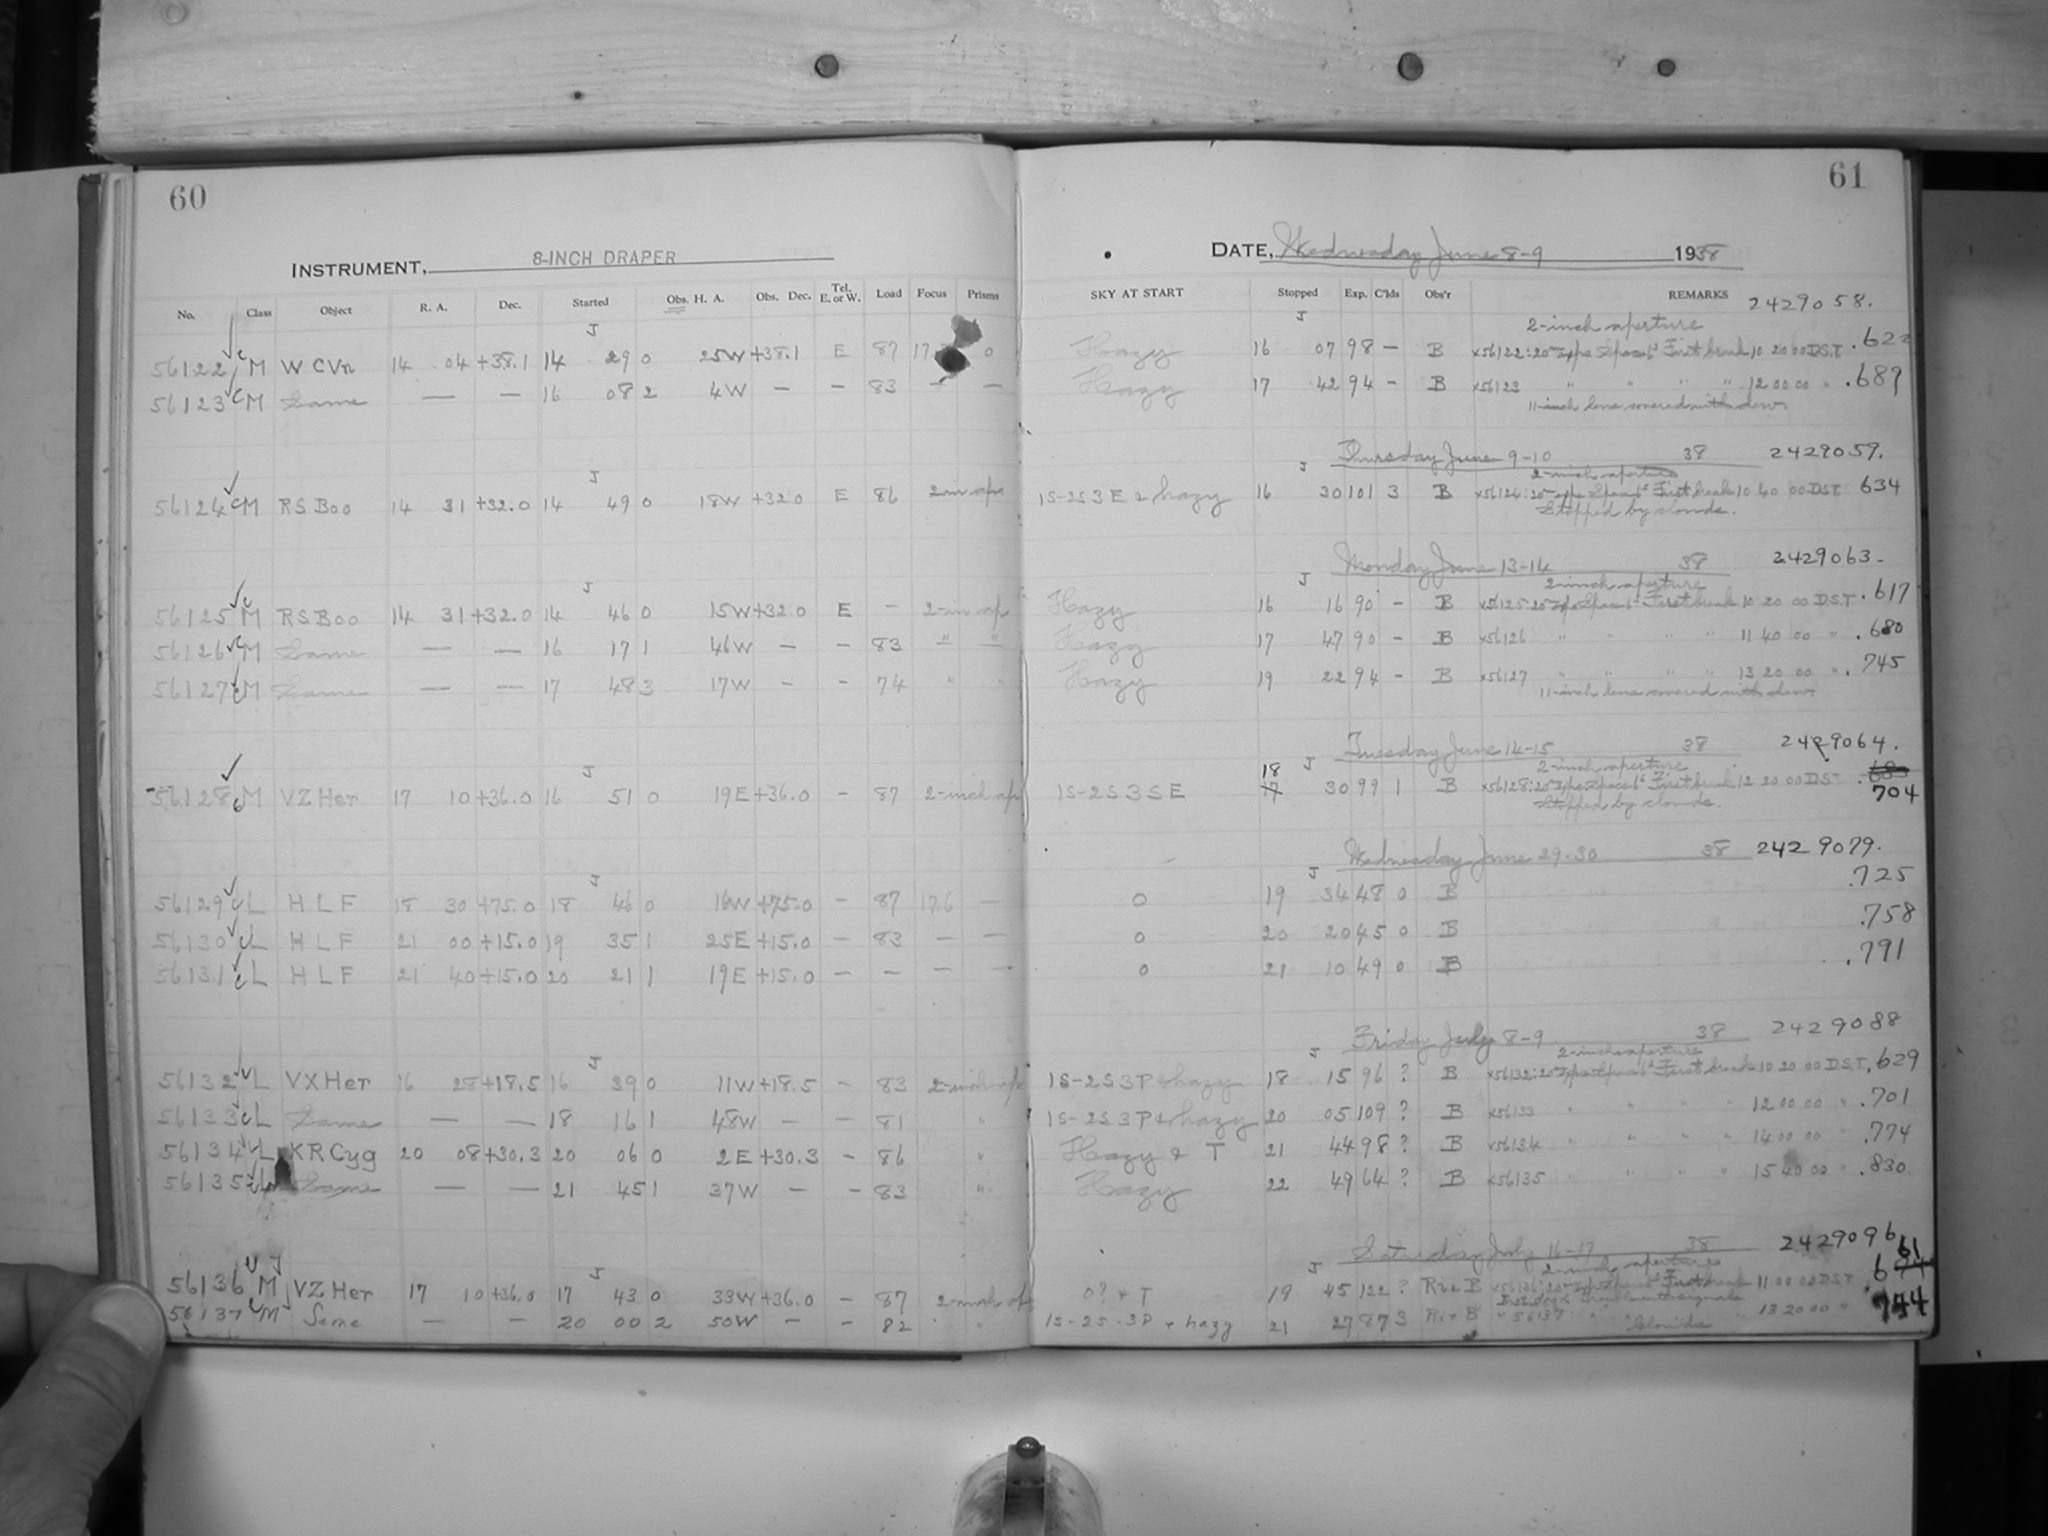 60
INSTRUMENT, 8-INCH DRAPER
No. Class Object R. A. Dec. Started Obs. H. A. Obs. Dec. Tel. E. or W. Load Focus Prisms
J
56122 M W CVn 14 04 +38.1 14 29 0 25W +38.1 E 87 17. 0
56123 CM Same — — 16 08 2 4W — — 83 — —
J
56124 CM RS Boo 14 31 +32.0 14 49 0 18W +32.0 E 86 2-in ap
J
56125 M RS Boo 14 31 +32.0 14 46 0 15W +32.0 E — 2-in ap
56126 CM Same — — 16 17 1 46W — — 83 " "
56127 CM Same — — 17 48 3 17W — — 74 " "
J
56128 CM VZ Her 17 10 +36.0 16 51 0 19E +36.0 — 87 2-inch ap
J
56129 CL HLF 18 30 +75.0 18 46 0 16W +75.0 — 87 17.6 —
56130 CL HLF 21 00 +15.0 19 35 1 25E +15.0 — 83 — —
56131 CL HLF 21 40 +15.0 20 21 1 19E +15.0 — — — —
J
56132 L VX Her 16 28 +18.5 16 39 0 11W +18.5 — 83 2-inch ap
56133 CL Same — — 18 16 1 48W — — 81 "
56134 L XR Cyg 20 08 +30.3 20 06 0 2E +30.3 — 86 "
56135 L Same — — 21 45 1 37W — — 83 "
J
56136 M VZ Her 17 10 +36.0 17 43 0 33W +36.0 — 87 2-inch ap
56137 CM Same — — 20 00 2 50W — — 82 " "
61
DATE, Wednesday June 8-9 1938
SKY AT START Stopped Exp. C'lds Obs'r REMARKS 2429058.
J 2-inch aperture
Hazy 16 07 98 — B x56122: 20 First break 10 20 00 D.S.T. .622
Hazy 17 42 94 — B x56123 " " " " 12 00 00 " .689
11-inch lens covered with dew.
Thursday June 9-10 38 2429059.
J 2-inch aperture
1S-2S3E & hazy 16 30 101 3 B x56124: 20 First break 10 40 00 D.S.T. 634
Stopped by clouds.
Monday June 13-14 38 2429063-
J 2-inch aperture
Hazy 16 16 90 — B x56125: 20 First break 10 20 00 D.S.T. .617
Hazy 17 47 90 — B x56126 " " " " 11 40 00 " .680
Hazy 19 22 94 — B x56127 " " " " 13 20 00 " .745
11-inch lens covered with dew.
Tuesday June 14-15 38 2429064.
18 J 2-inch aperture .685
1S-2S3SE 17 30 99 1 B x56128: 20 First break 12 20 00 D.S.T. 704
Stopped by clouds.
Wednesday June 29-30 38 2429079.
J .725
0 19 34 48 0 B
.758
0 20 20 45 0 B
.791
0 21 10 49 0 B
Friday July 8-9 38 2429088
J 2-inch aperture
1S-2S3P & hazy 18 15 96 ? B x56132: 20 First break 10 20 00 D.S.T. .629
1S-2S3P & hazy 20 05 109 ? B x56133 " " " 12 00 00 " .701
Hazy & T 21 44 98 ? B x56134 " " " 14 00 00 " .774
Hazy 22 49 64 ? B x56135 " " " 15 40 00 " .830
Saturday July 16-17 38 2429096
J 2-inch aperture 61
0? & T 19 45 122 ? Ri & B x56136: 20 First break 11 00 00 D.S.T. 674
1S-2S-3P & hazy 21 27 87 3 Ri & B " 56137 " " 13 20 00 " 744
Clouds